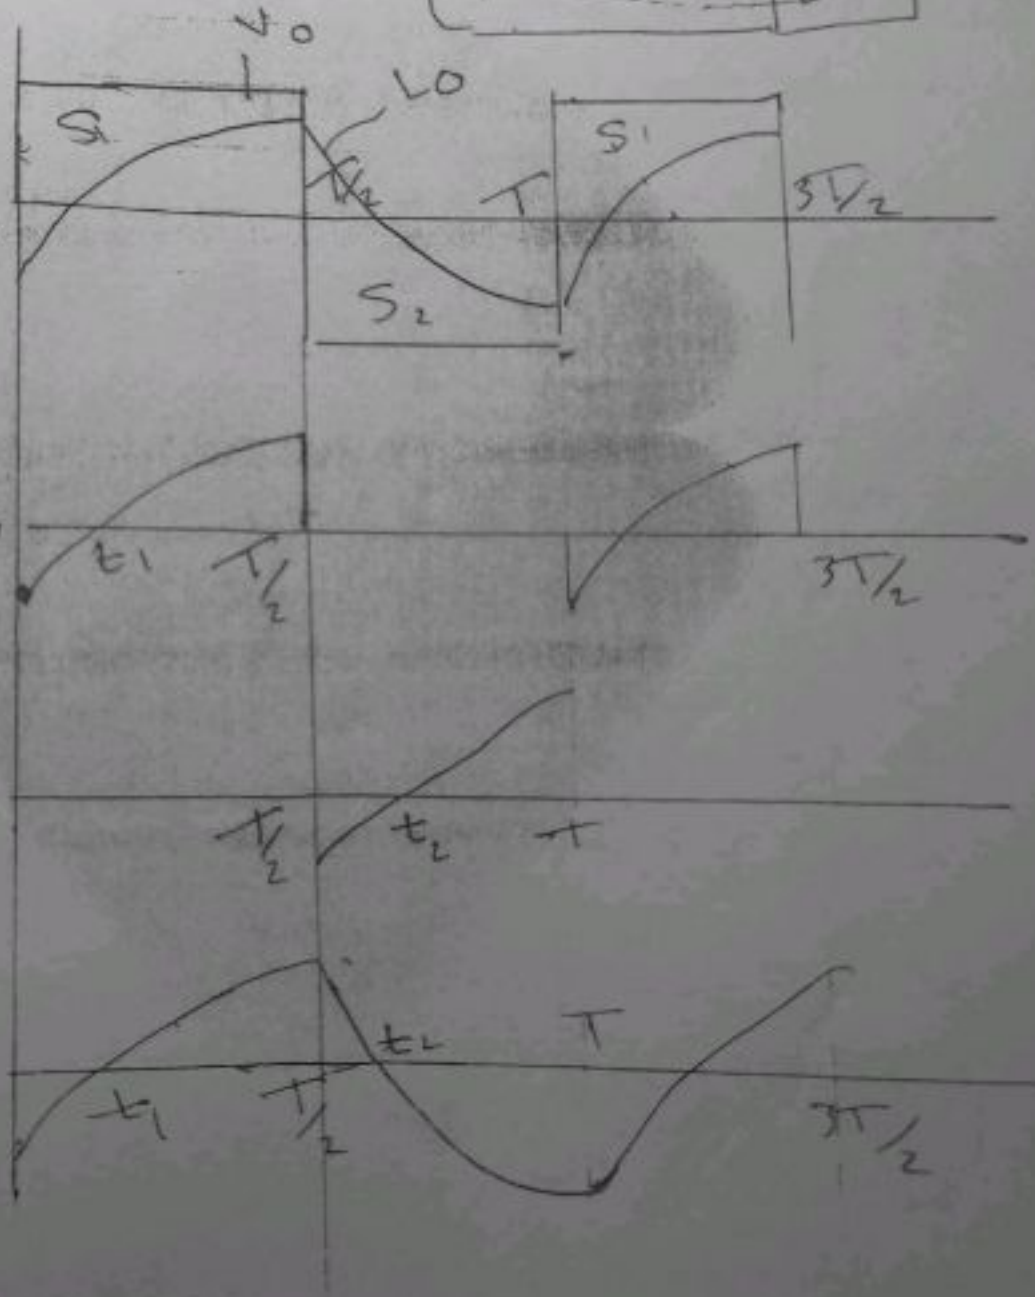 V0
L0
S1
T/2
T
S1
3T/2
S2
t1
T/2
3T/2
T/2
t2
T
t2
T
t1
T/2
3T/2